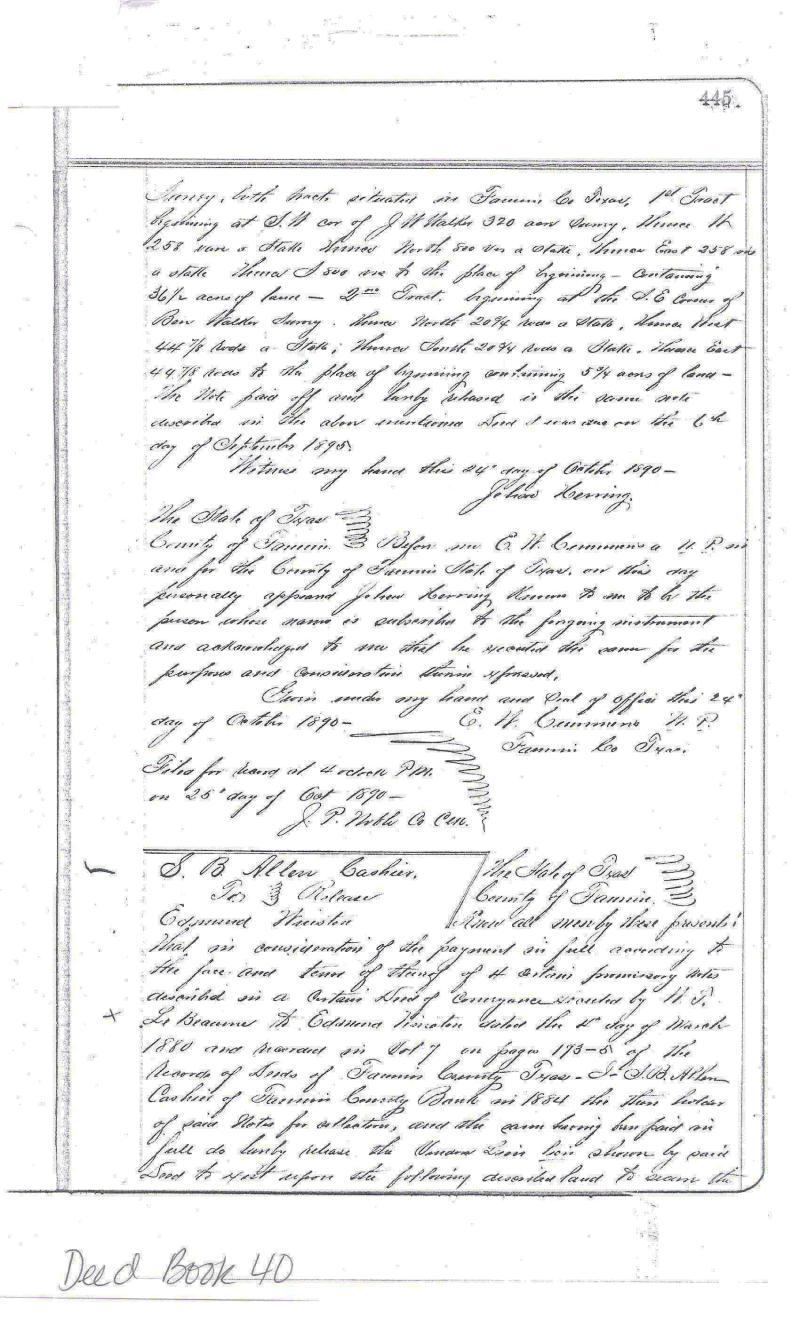 445.
Survey, both tracts situated in Fannin Co Texas, 1st Tract
beginning at S.W cor of J W Walker 320 acre Survey, Thence W
258 vars a Stake Thence North 800 vrs a stake, Thence East 258 vrs
a stake Thence S 800 vrs to the place of beginning – Containing
36 1/2 acres of land – 2nd Tract. beginning at the S.E Corner of
Ben Walker Survey. Thence North 20 3/4 rods a Stake, Thence West
44 7/8 rods a Stake; Thence South 20 3/4 rods a Stake. Thence East
44 7/8 rods to the place of beginning containing 5 3/4 acres of land –
The Note paid off and hereby released is the same note
described in the above mentioned Deed & was due on the 6th
day of September 1895.
Witness my hand this 24" day of October 1890 –
Herring
The State of Texas
County of Fannin Before me E. W. Cummens a N. P. in
and for the County of Fannin State of Texas. on this day
personally appeared Herring Known to me to be the
person whose name is subscribed to the forgoing instrument
and acknowledged to me that he executed the same for the
purposes and consideration therein expressed.
Given under my hand and Seal of office this 24"
day of October 1890 – E. W. Cummens N. P.
Fannin Co Texas.
Filed for record at 4 oclock P.M.
on 25" day of Oct 1890 –
J. P. Noble Co Clk.
S. B. Allen Cashier.
To Release
Edmund Winston
The State of Texas
County of Fannin
Know all men by these presents!
That in consideration of the payment in full according to
the face and tenor of 4 certain promissory notes
described in a Certain Deed of Conveyance executed by
Le Beaume to Edmund Winston dated the 4" day of March
1880 and recorded in Vol 7 on pages 173-5 of the
Records of Deeds of Fannin County Texas – I S. B. Allen
Cashier of Fannin County Bank in 1884 the then holder
of said Notes for collection, and the same having been paid in
full do hereby release the Vendors Lien shown by said
Deed to exist upon the following described land to secure the
Deed Book 40